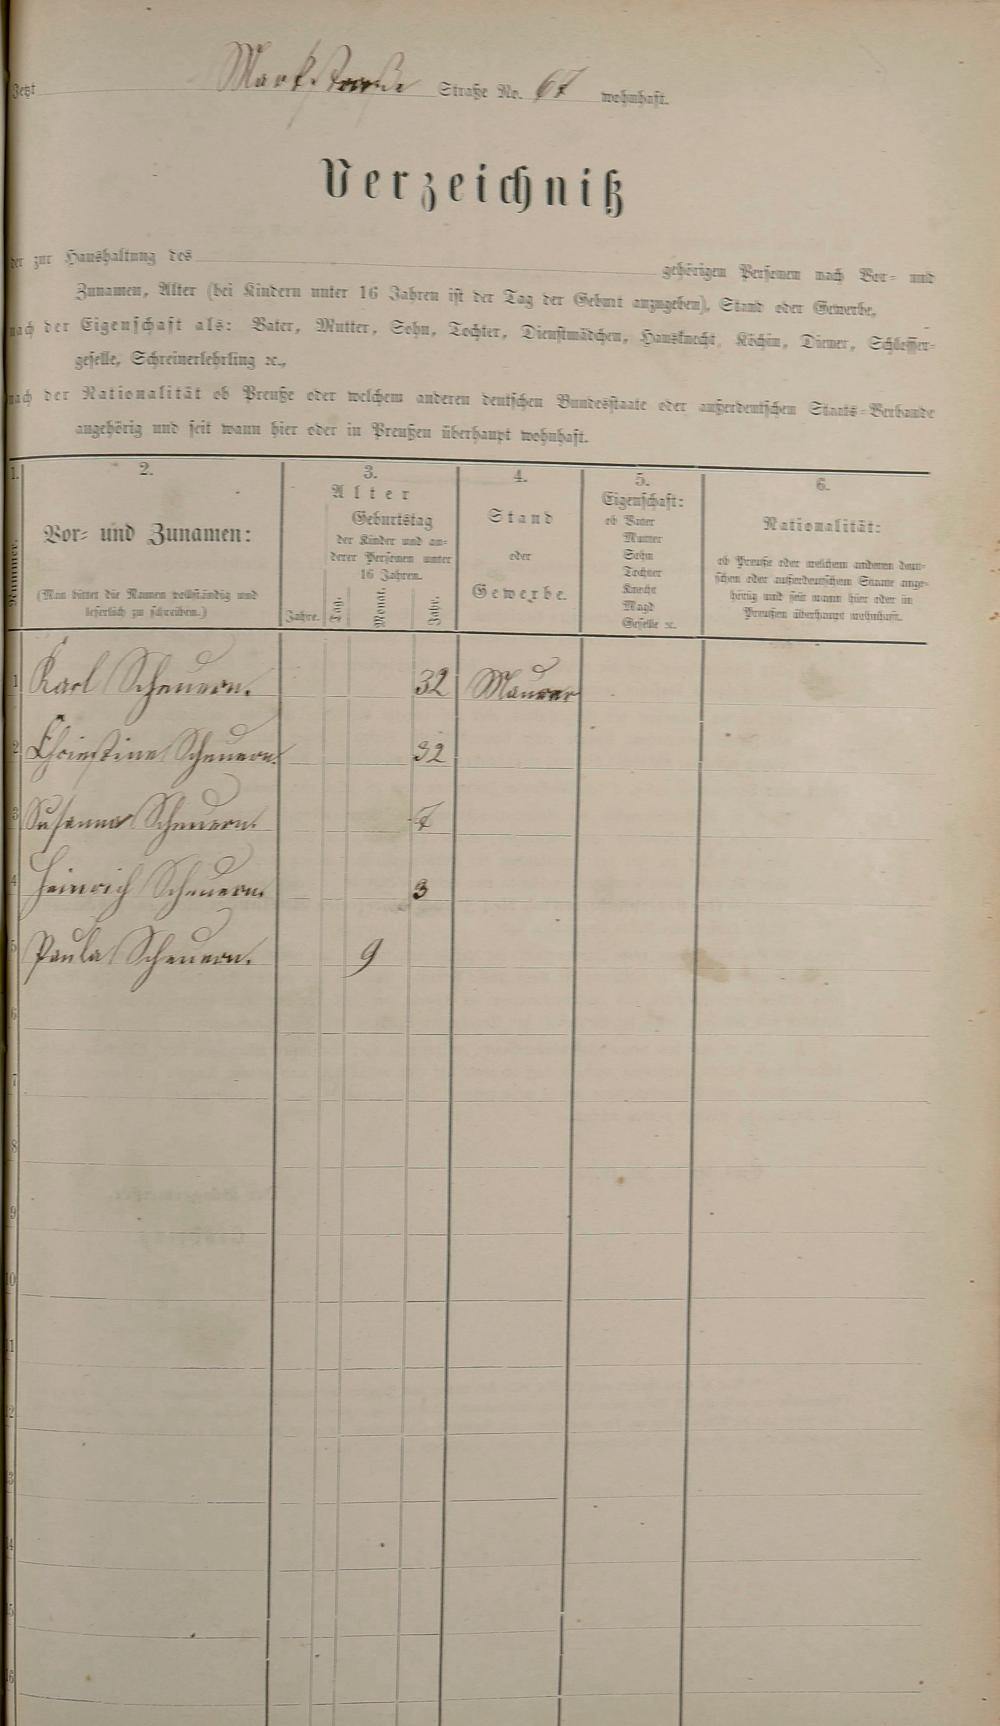 Jetzt Markstraße Straße No. 67 wohnhaft.
Verzeichniß
der zur Haushaltung des gehörigen Personen nach Vor- und
Zunamen, Alter (bei Kindern unter 16 Jahren ist der Tag der Geburt anzugeben), Stand oder Gewerbe,
nach der Eigenschaft als: Vater, Mutter, Sohn, Tochter, Dienstmädchen, Hausknecht, Köchin, Diener, Schlosser-
geselle, Schreinerlehrling ꝛc.,
nach der Nationalität ob Preuße oder welchem anderen deutschen Bundesstaate oder außerdeutschem Staats-Verbande
angehörig und seit wann hier oder in Preußen überhaupt wohnhaft.
1. 2. 3. 4. 5. 6.
Nummer.
Vor- und Zunamen:
(Man bittet die Namen vollständig und
leserlich zu schreiben.)
Alter
Geburtstag
der Kinder und an-
derer Personen unter
16 Jahren.
Jahre. Tag. Monat. Jahr.
Stand
oder
Gewerbe.
Eigenschaft:
ob Vater
Mutter
Sohn
Tochter
Knecht
Magd
Geselle ꝛc.
Nationalität:
ob Preuße oder welchem anderen deut-
schen oder außerdeutschem Staate ange-
hörig und seit wann hier oder in
Preußen überhaupt wohnhaft.
1 Karl Scheuern. 32 Maurer
2 Christine Scheuern. 32
3 Susanna Scheuern. 7
4 Heinrich Scheuern. 3
5 Paula Scheuern. 9
6
7
8
9
10
11
12
13
14
15
16